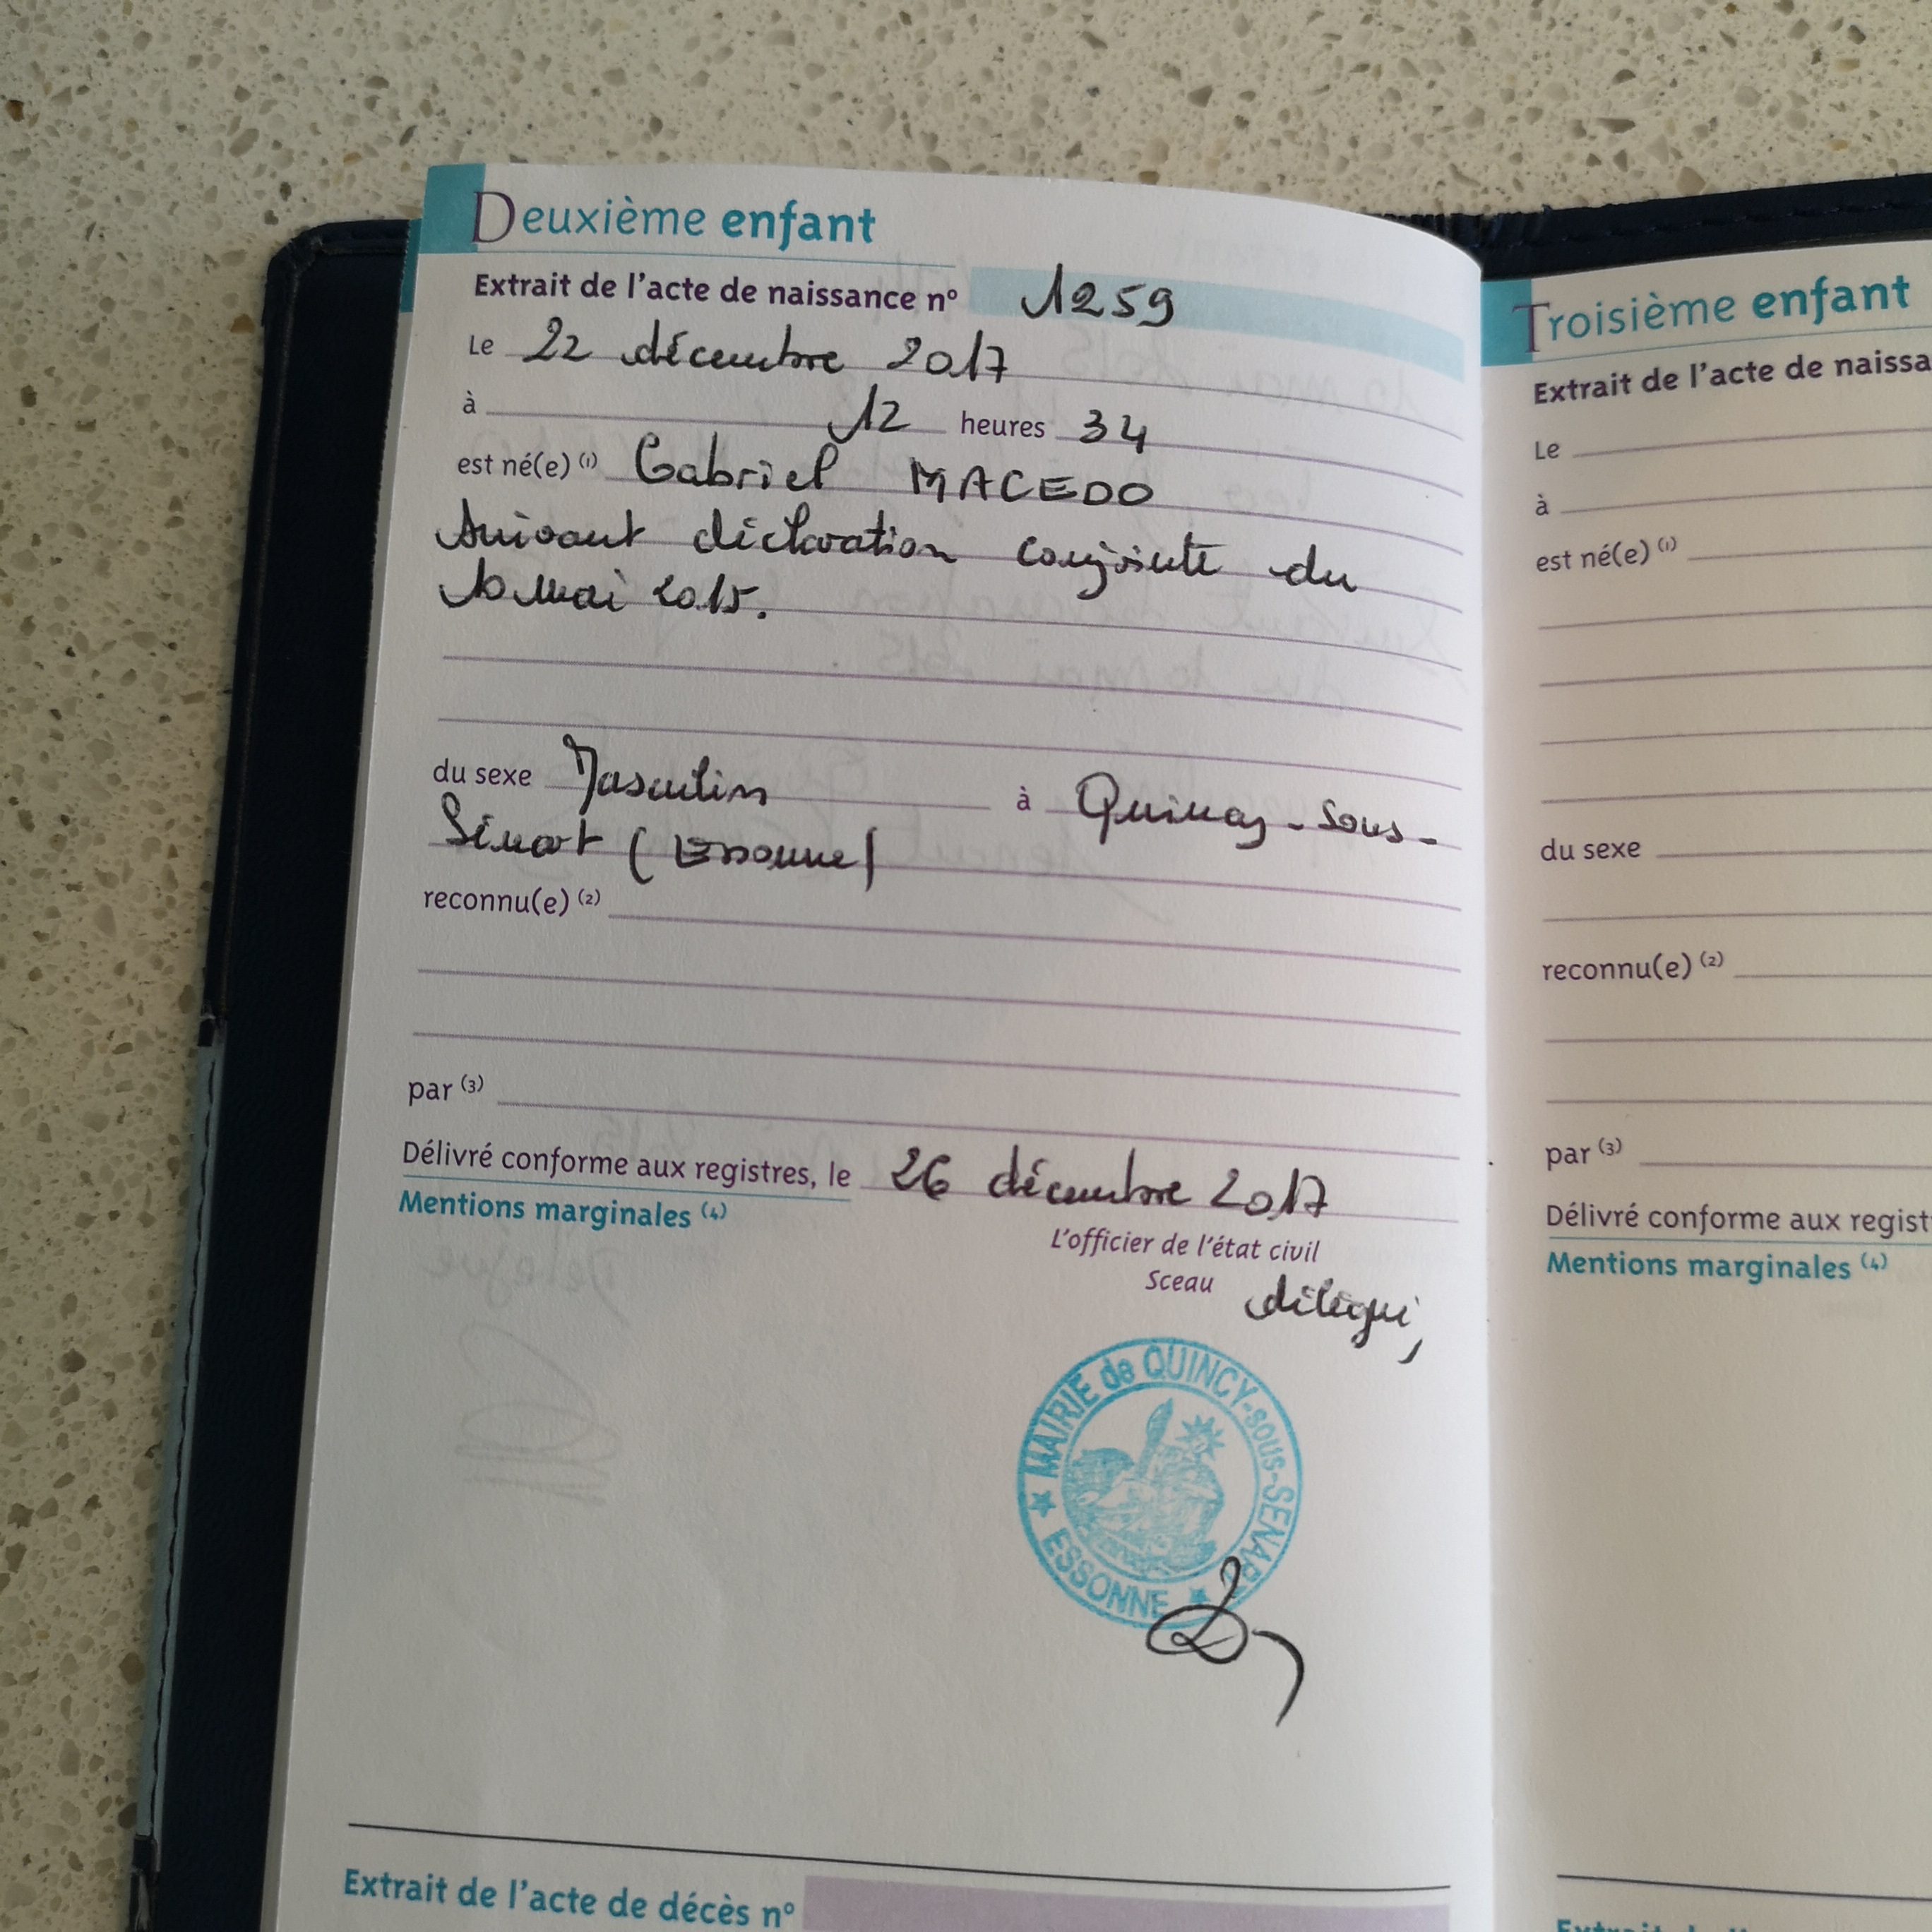 Deuxième enfant
Extrait de l'acte de naissance nº 1259
Le 22 décembre 2017
à 12 heures 34
est né(e) (1) Gabriel MACEDO
suivant déclaration conjointe du
10 mai 2015.
du sexe Masculin à Quincy-sous-
Sénart (Essonne)
reconnu(e) (2)
par (3)
Délivré conforme aux registres, le 26 décembre 2017
Mentions marginales (4)
L'officier de l'état civil
Sceau délégué,
MAIRIE de QUINCY-sous-SENART
ESSONNE
Extrait de l'acte de décès nº
Troisième enfant
Extrait de l'acte de naissa
Le
à
est né(e) (1)
du sexe
reconnu(e) (2)
par (3)
Délivré conforme aux regist
Mentions marginales (4)